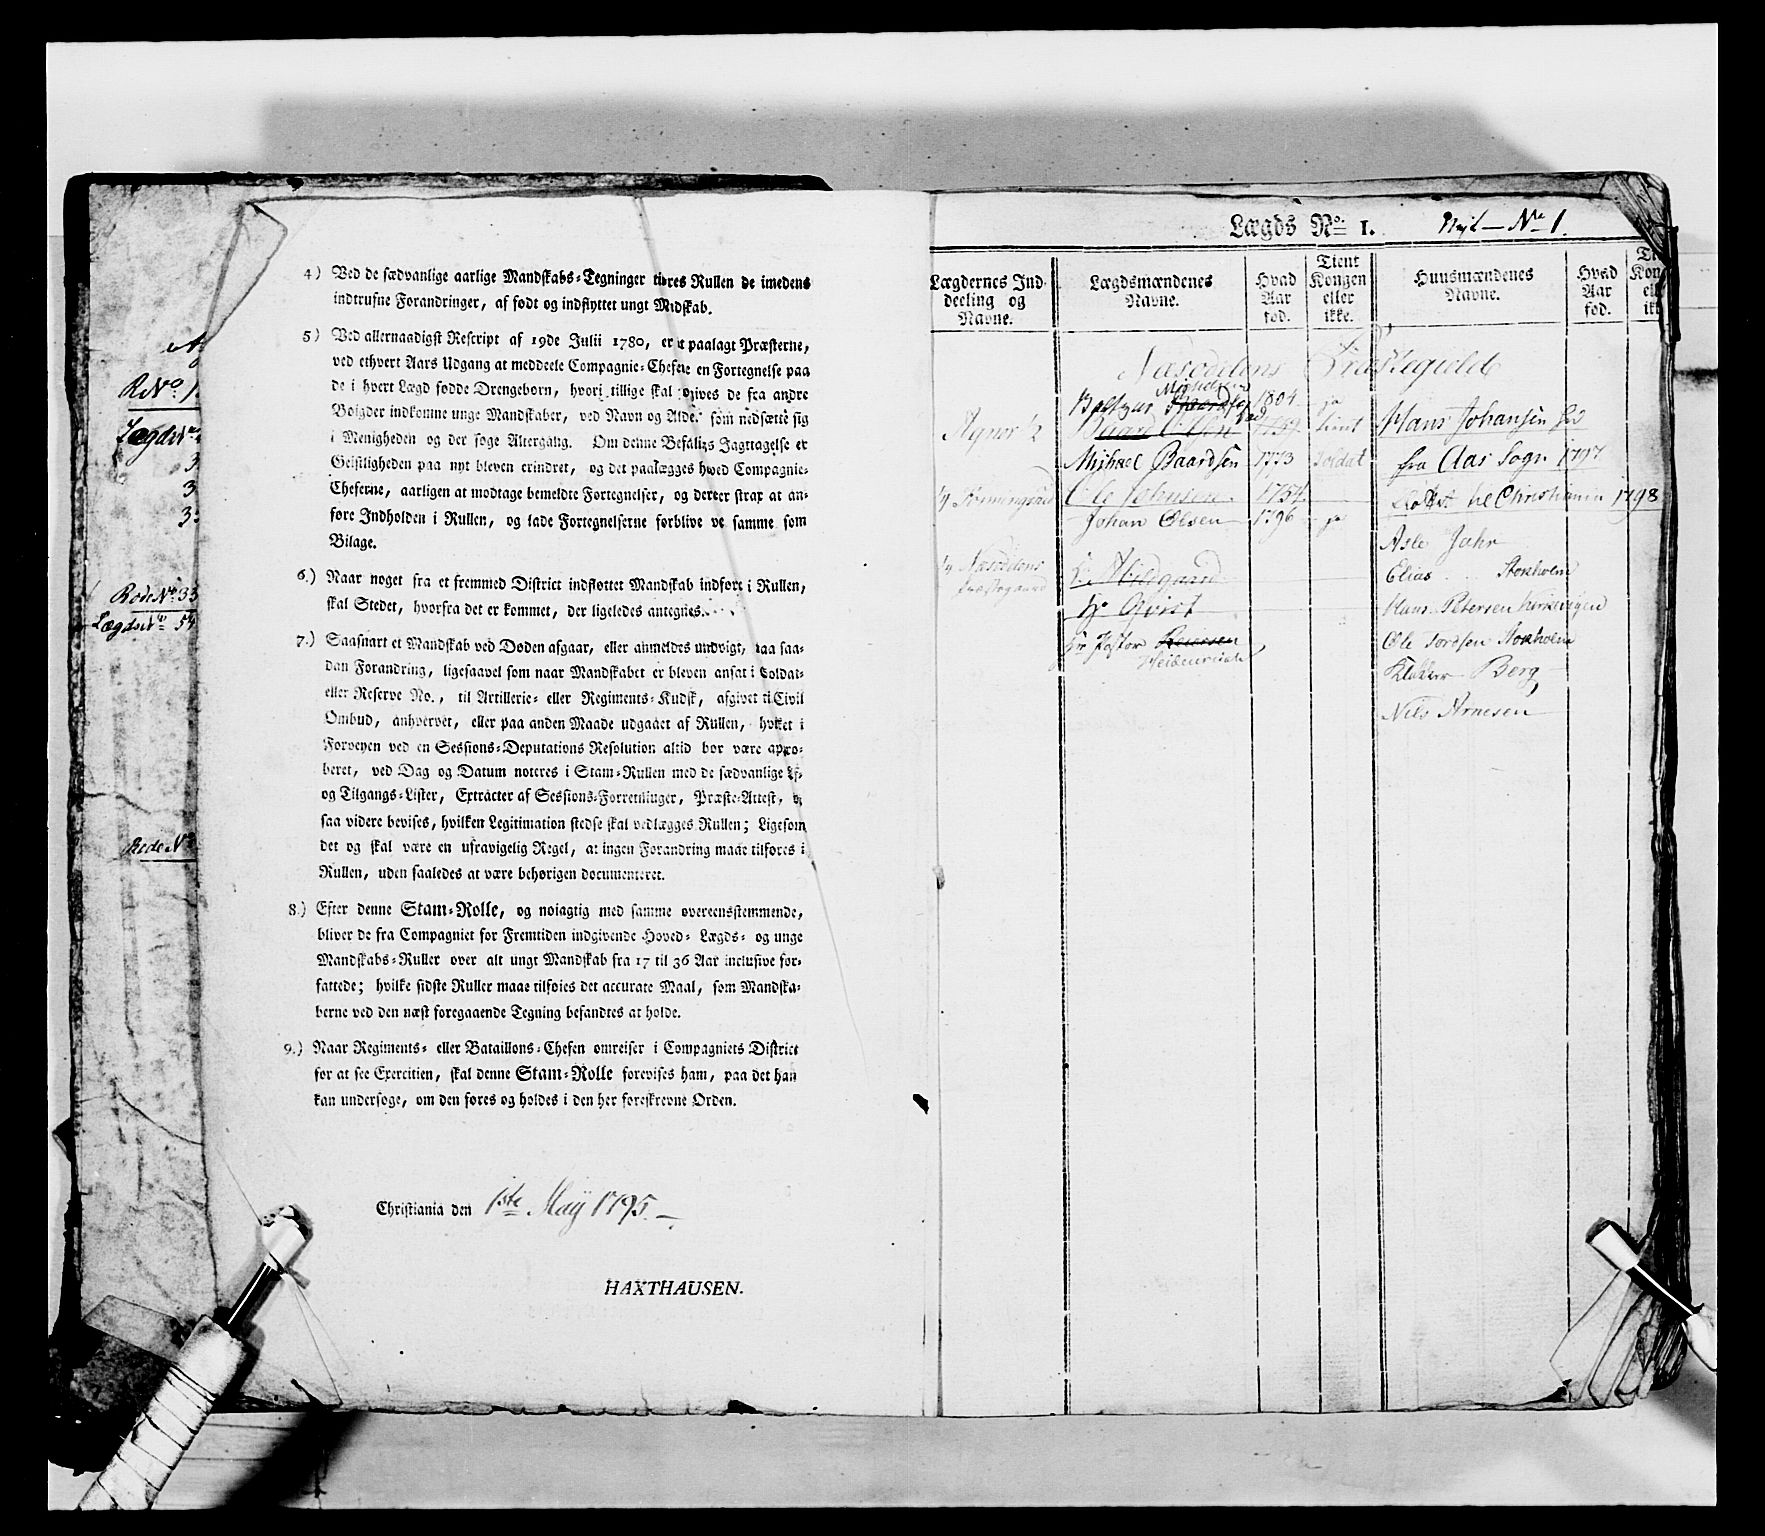 RNo 1.
Lægds No
3
3
3
Rode No 33
Lægds No 54
Rode No
4) Ved de sædvanlige aarlige Mandskabs-Tegninger tilføres Rullen de imedens
indtrufne Forandringer, af født og indflyttet ungt Mdskab.
5) Ved allernaadigst Rescript af 19de Julii 1780, er et paalagt Præsterne,
ved ethvert Aars Udgang at meddeele Compagnie-Chefene en Fortegnelse paa
de i hvert Lægd fødde Drengebørn, hvori tillige skal opgives de fra andre
Bøigder indkomne unge Mandskaber, ved Navn og Alder som nedsætte sig
i Menigheden og der søge Altergang. Om denne Befalings Jagttagelse er
Geistligheden paa nyt bleven erindret, og det paalægges hved Compagnie-
Cheferne, aarligen at modtage bemeldte Fortegnelser, og derter strax at an-
føre Indholden i Rullen, og lade Fortegnelserne forblive ve samme som
Bilage.
6.) Naar noget fra et fremmed District indflottet Mandskab indført i Rullen,
skal Stedet, hvorfra det er kommet, der ligeledes antegnes.
7.) Saasnart et Mandskab ved Døden afgaar, eller anmeldes undvigt, saa saa-
dan Forandring, ligesaavel som naar Mandskabet er bleven ansat i Soldat-
eller Reserve No., til Artillerie- eller Regiments-Kudsk, afgivet til Civil
Ombud, anhvervet, eller paa anden Maade udgaaet af Rullen, hvilket i
Forveyen ved en Sessions-Deputations Resolution altid bør være appro-
beret, ved Dag og Datum noteres i Stam-Rullen med de sædvanlige Af-
og Tilgangs-Lister, Extracter af Sessions-Forretninger, Præste-Attest, og
saa videre bevises, hvilken Legitimation stedse skal vedlægges Rullen; Ligesom
det og skal være en ufravigelig Regel, at ingen Forandring maae tilføres i
Rullen, uden saaledes at være behørigen documenteret.
8.) Efter denne Stam-Rolle, og nøiagtig med samme overeensstemmende,
bliver de fra Compagniet for Fremtiden indgivende Hoved- Lægds- og unge
Mandskabs-Ruller over alt ungt Mandskab fra 17 til 36 Aar inclusive for-
fattede; hvilke sidste Ruller maae tilføies det accurate Maal, som Mandska-
berne ved den næst foregaaende Tegning befandtes at holde.
9.) Naar Regiments- eller Bataillons-Chefen omreiser i Compagniets District
for at see Exercitien, skal denne Stam-Rolle forevises ham, paa det han
kan undersøge, om den føres og holdes i den her foreskrevne Orden.
Christiania den 1ste Maÿ 1795.
HAXTHAUSEN.
Lægds No 1. Nyt No 1.
Lægdernes Ind-
deeling og
Navne.
Lægdsmændenes
Navne.
Hvad
Aar
fød.
Tient
Kongen
eller
ikke.
Huusmændenes
Navne.
Hvad
Aar
fød.
Næsoddens Præstegield
Michelsen
Baltzer 1804 ja
Agnor 1/2 Baard Olsen 1752 tient Hans Johansen
Michael Baardsen 1773 Soldat fra Aas Sogn 1797
Ole Johnsen 1754 til Christiania 1798
Johan Olsen 1796 ja
Asle Jahr
1/4 Næsoddens
Præstegaard
Hr Abildgaard
Elias Storholm
Hr Qvist
Hans Petersen
Hr Pastor
Heidenreich
Ole Tordsen Storholm
Klokker Berg
Nils Arnesen